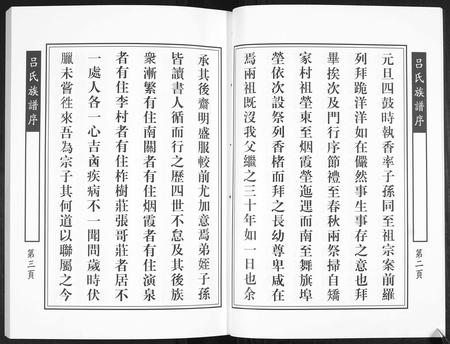 呂氏族譜序
元旦四鼓時執香率子孫同至祖宗案前羅
列拜跪洋洋如在儼然事生事存之意也拜
畢挨次及門行序節禮至春秋兩祭掃自矯
家村祖塋東至烟霞塋迤邐而南至舞旗埠
塋依次設祭列香楮而拜之長幼尊卑咸在
焉兩祖既沒我父繼之三十年如一日也余
第二頁
承其後齋明盛服較前尤加意焉弟姪子孫
皆讀書人循而行之歷四世不怠及其後族
衆漸繁有住南關者有住烟霞者有住演泉
者有住李村者有住柞樹莊張哥莊者居不
一處人各一心吉凶疾病不一聞問歲時伏
臘未嘗徃來吾為宗子其何道以聯屬之今
呂氏族譜序
第三頁